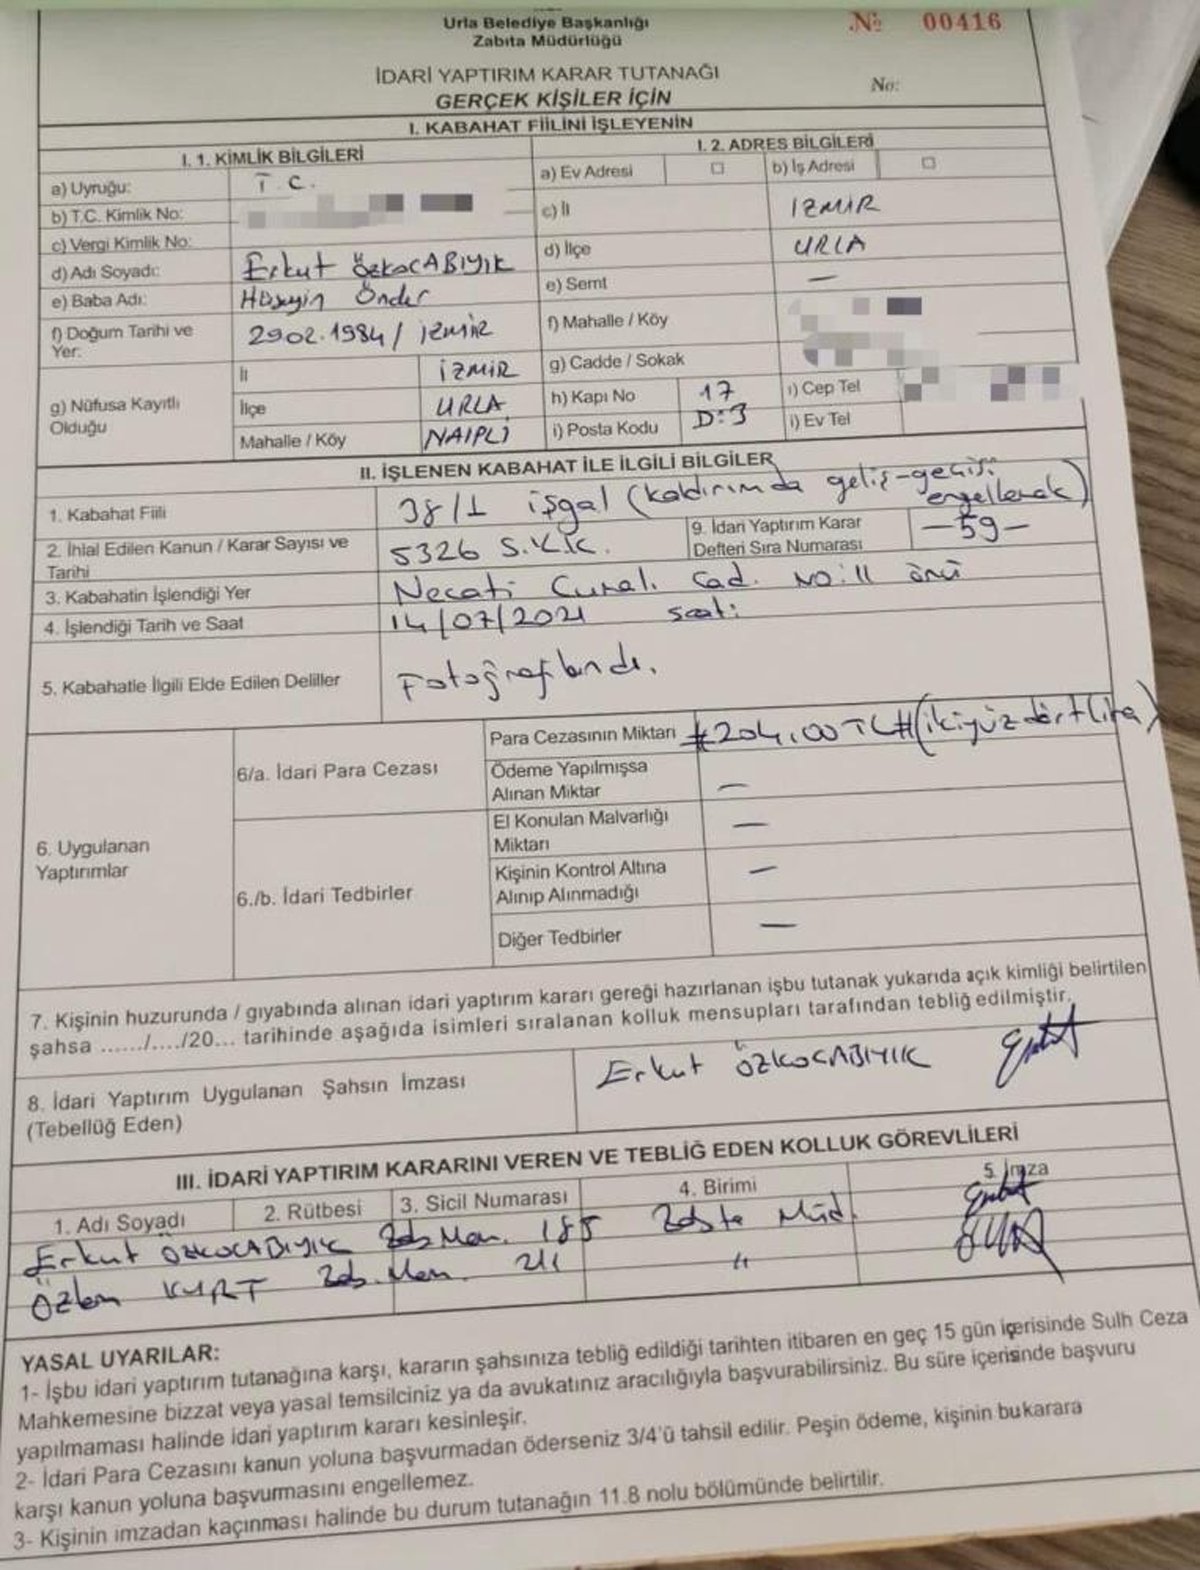 Urla Belediye Başkanlığı
Zabıta Müdürlüğü
№ 00416
İDARİ YAPTIRIM KARAR TUTANAĞI
GERÇEK KİŞİLER İÇİN
No:
I. KABAHAT FİİLİNİ İŞLEYENİN
I. 1. KİMLİK BİLGİLERİ
I. 2. ADRES BİLGİLERİ
a) Uyruğu: T.C.
a) Ev Adresi b) İş Adresi
b) T.C. Kimlik No:
c) İl İZMİR
c) Vergi Kimlik No:
d) İlçe URLA
d) Adı Soyadı: Erkut ÖZKOCABIYIK
e) Semt —
e) Baba Adı: Hüseyin Önder
f) Mahalle / Köy
f) Doğum Tarihi ve Yer: 29.02.1984 / İZMİR
g) Cadde / Sokak
g) Nüfusa Kayıtlı Olduğu
İl İZMİR
h) Kapı No 17 D:3
ı) Cep Tel
İlçe URLA
i) Posta Kodu
i) Ev Tel
Mahalle / Köy NAIPLİ
II. İŞLENEN KABAHAT İLE İLGİLİ BİLGİLER
1. Kabahat Fiili 38/1 işgal (kaldırımda geliş-geçişi engellemek)
2. İhlal Edilen Kanun / Karar Sayısı ve Tarihi 5326 S.K.K.
9. İdari Yaptırım Karar Defteri Sıra Numarası -59-
3. Kabahatin İşlendiği Yer Necati Cad. No:11 önü
4. İşlendiği Tarih ve Saat 14/07/2021 saat:
5. Kabahatle İlgili Elde Edilen Deliller Fotoğraflandı.
6. Uygulanan Yaptırımlar
6/a. İdari Para Cezası
Para Cezasının Miktarı #204,00TL#(ikiyüzdörtlira)
Ödeme Yapılmışsa Alınan Miktar —
6./b. İdari Tedbirler
El Konulan Malvarlığı Miktarı —
Kişinin Kontrol Altına Alınıp Alınmadığı —
Diğer Tedbirler —
7. Kişinin huzurunda / gıyabında alınan idari yaptırım kararı gereği hazırlanan işbu tutanak yukarıda açık kimliği belirtilen
şahsa ....../..../20... tarihinde aşağıda isimleri sıralanan kolluk mensupları tarafından tebliğ edilmiştir.
8. İdari Yaptırım Uygulanan Şahsın İmzası
(Tebellüğ Eden)
Erkut ÖZKOCABIYIK
III. İDARİ YAPTIRIM KARARINI VEREN VE TEBLİĞ EDEN KOLLUK GÖREVLİLERİ
1. Adı Soyadı 2. Rütbesi 3. Sicil Numarası 4. Birimi 5. İmza
Erkut ÖZKOCABIYIK Zab. Mem. 185 Zabıta Müd.
Özlem KURT Zab. Mem. 211 "
YASAL UYARILAR:
1- İşbu idari yaptırım tutanağına karşı, kararın şahsınıza tebliğ edildiği tarihten itibaren en geç 15 gün içerisinde Sulh Ceza
Mahkemesine bizzat veya yasal temsilciniz ya da avukatınız aracılığıyla başvurabilirsiniz. Bu süre içerisinde başvuru
yapılmaması halinde idari yaptırım kararı kesinleşir.
2- İdari Para Cezasını kanun yoluna başvurmadan öderseniz 3/4'ü tahsil edilir. Peşin ödeme, kişinin bu karara
karşı kanun yoluna başvurmasını engellemez.
3- Kişinin imzadan kaçınması halinde bu durum tutanağın 11.8 nolu bölümünde belirtilir.